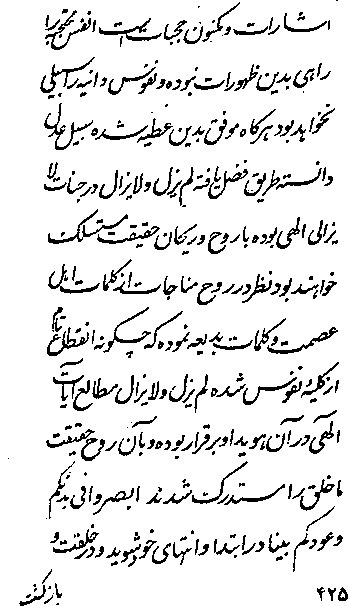 اشارات و مکنون حجبات است انفس محتجبه را
راهی بدین ظهورات نبوده و نفوس دانیه را سبیلی
نخواهد بود هر گاه موفق بدین عطیه شده سبیل عدل
دانسته طریق فضل یافته لم یزل و لا یزال در جنات لا
یزالی الهی بوده با روح و ریحان حقیقت مستسلک
خواهند بود نظر در روح مناجات از کلمات اهل
عصمت و کلمات بدیعه نموده که چگونه انقطاع تام
از کلیهٔ نفوس شده لم یزل و لا یزال مطالع آیات
الهی در آن هویدا و برقرار بوده و بآن روح حقیقت
ما خلق را مستدرک شدند ابصروا فی بدئکم
و عودکم بینا در ابتدا و انتهای خود شوید و در خلقت و
۴۲۵ بازگشت